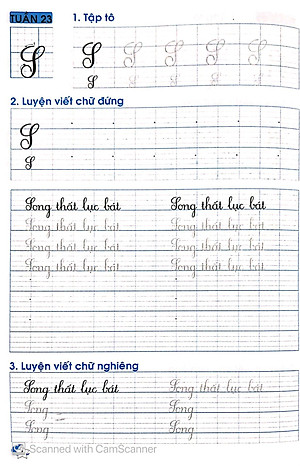 TUẦN 23
1. Tập tô
S S S S S S
S S S S S S
2. Luyện viết chữ đứng
S
S
Song thất lục bát Song thất lục bát
Song thất lục bát Song thất lục bát
Song thất lục bát Song thất lục bát
Song thất lục bát Song thất lục bát
3. Luyện viết chữ nghiêng
Song thất lục bát Song thất lục bát
Song Song
Song Song
Scanned with CamScanner